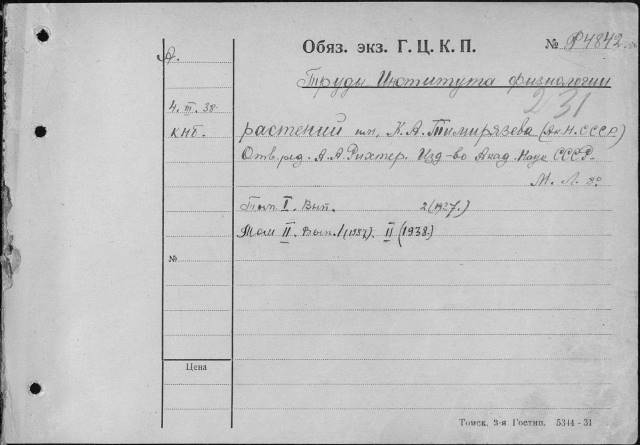 Обяз. экз. Г. Ц. К. П. № Р4842
А.
Труды Института физиологии
231
4.III.38 растений им. К. А. Тимирязева (Ак Н. СССР)
кнб. Отв. ред. А. А. Рихтер. Изд-во Акад. Наук СССР.
М. Л. 8°
Том I. Вып. 2 (1937.)
Том II. Вып. 1 (1937). II (1938.)
№
Цена
Томск, 3-я Гостип. 5344-31